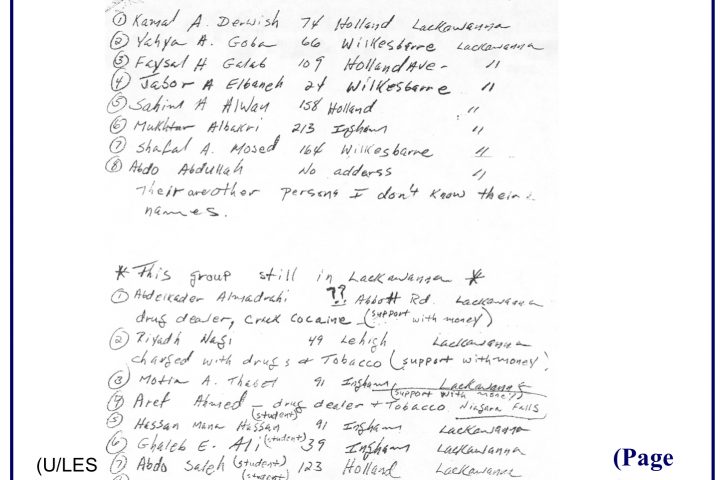 ① Kamal A. Derwish 74 Holland Lackawanna
② Yahya A. Goba 66 Wilkesbarre Lackawanna
③ Faysal H Galab 109 Holland Ave - "
④ Jabor A Elbaneh 24 Wilkesbarre "
⑤ Sahim A Alwan 158 Holland "
⑥ Mukhtar Albakri 213 Ingham "
⑦ Shafal A. Mosed 164 Wilkesbarre "
⑧ Abdo Abdullah No adderss "
Their are other persons I don't know their
names.
* This group still in Lackawanna *
① Abdelkader Almadrahi ?? Abbott Rd. Lackawanna
drug dealer, Crack Cocaine - (support with money)
② Riyadh Nagi 49 Lehigh Lackawanna
charged with drugs & Tobacco (support with money)
③ Motia A. Thabet 91 Ingham Lackawanna
(support with money)
④ Aref Ahmed - drug dealer & Tobacco Niagara Falls
⑤ Hassan Mana Hassan (student) 91 Ingham Lackawanna
⑥ Ghaleb E. Ali (student) 39 Ingham Lackawanna
⑦ Abdo Saleh (student) 123 Holland Lackawanna
(student)
(U/LES (Page